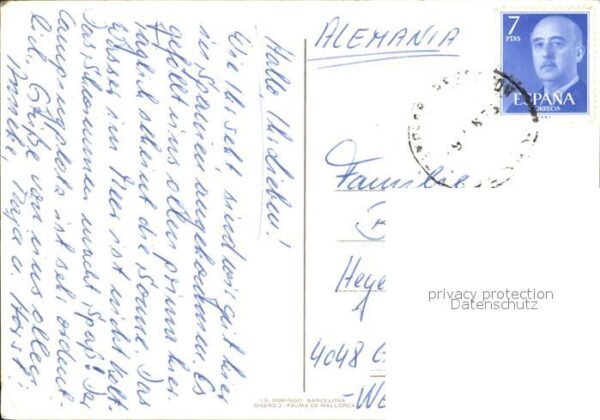 Hallo Ihr Lieben!
Wie Ihr seht sind wir gut hier
in Spanien angekommen. Es
gefällt uns allen prima hier.
Täglich scheint die Sonne. Das
Wasser im Meer ist nicht kalt.
Das Schwimmen macht Spaß! Der
Campingplatz ist sehr ordent-
lich. Grüße von uns allen
u. Horst!
ALEMANIA
7
PTAS
ESPAÑA
CORREOS
Familie
Heye
4048 G
-We
privacy protection
Datenschutz
I.G. DOMINGO BARCELONA
DISEÑO Z - PALMA DE MALLORCA